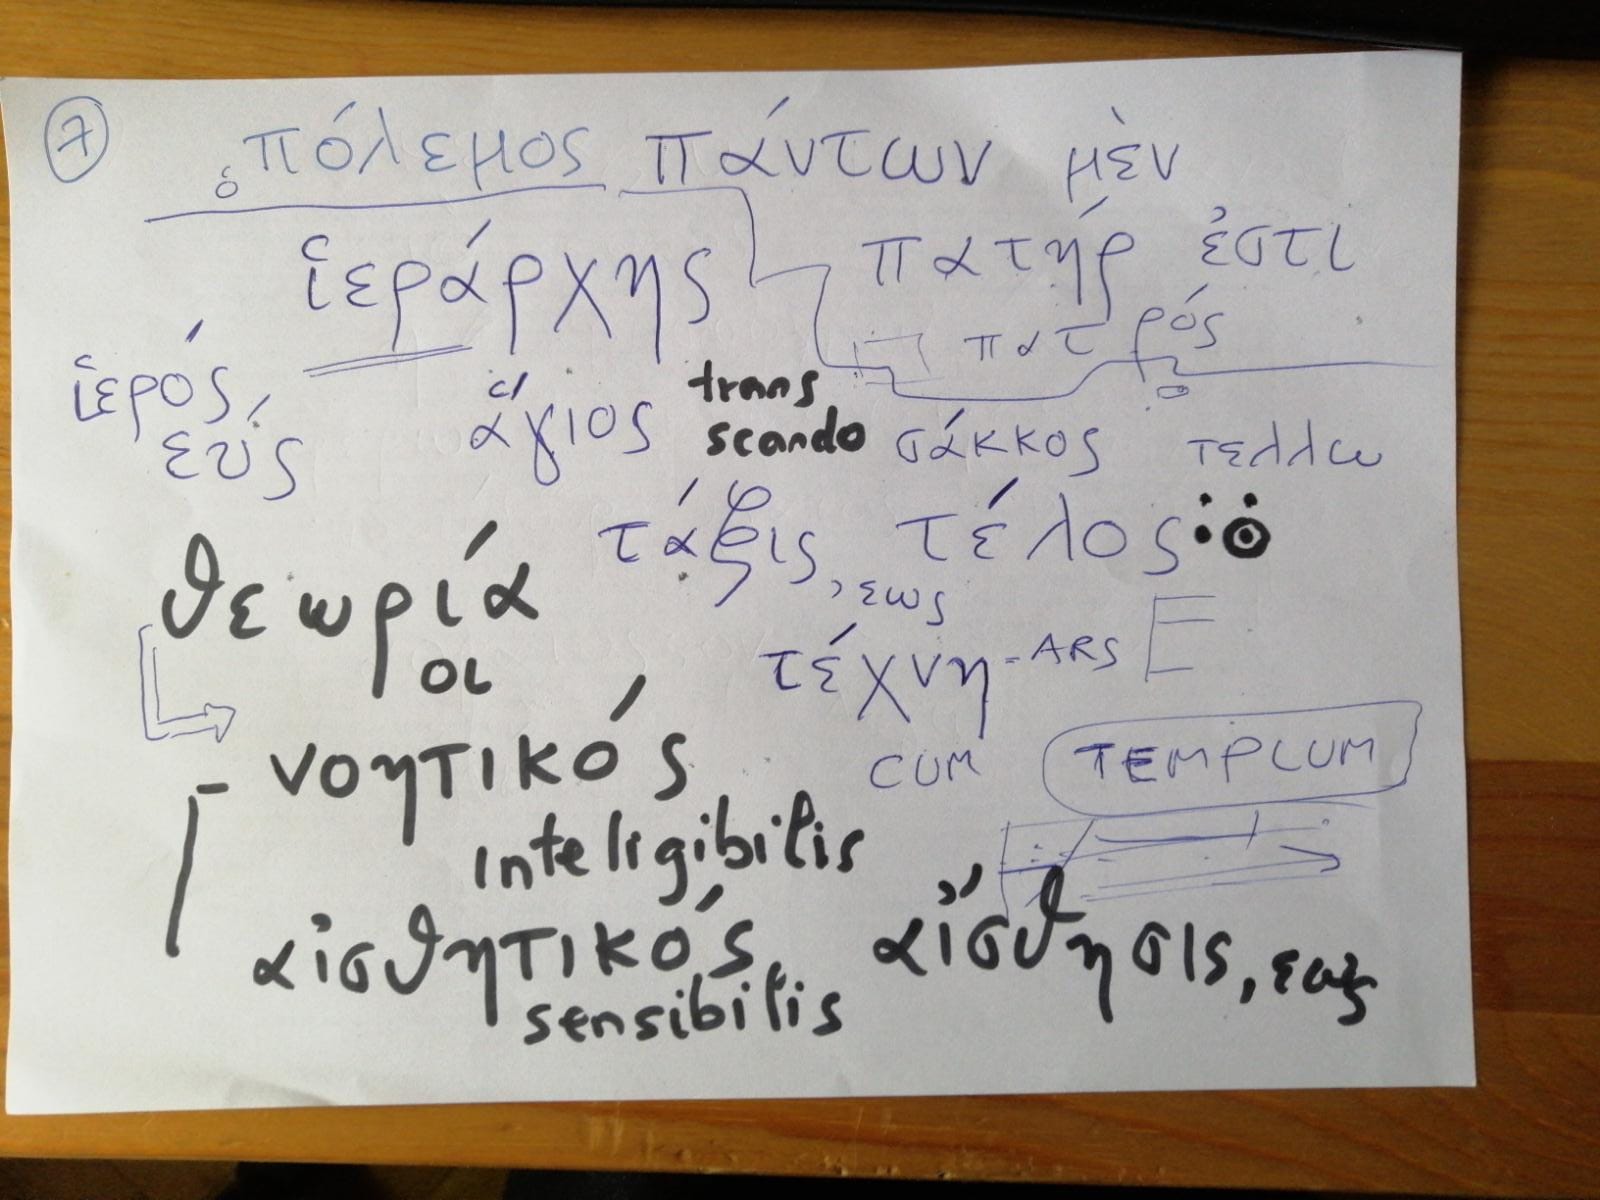 7
πόλεμος πάντων μὲν
ὁ
ἱεράρχης πατήρ ἐστι
πατρός
ἱερός, ἅγιος trans
εύς scando σάκκος τελλω
τάξις, εως τέλος
θεωρία
οι τέχνη - ARS E
νοητικός CUM TEMPLUM
inteligibilis
αἰσθητικός αἴσθησις, εως
sensibilis